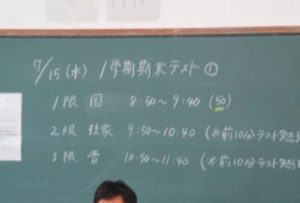 7/15(水) 1学期期末テスト①
1限 国 8:50～9:40 (50)
2限 技家 9:50～10:40 (※前10分テスト
3限 音 10:50～11:40 (※前10分テスト